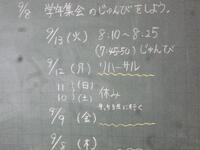 9/8 学年集会のじゅんびをしよう。
9/13(火) 8:10~8:25
(7:45-50)じゅんび
9/12(月) リハーサル
11(日)
10(土) 休み
9/9(金)
9/8(木)